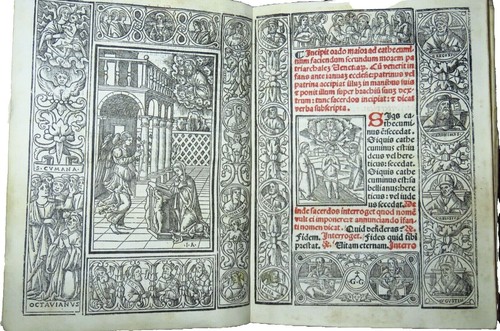 S. CVMANA.
OCTAVIANVS
.I.A.
Incipit ordo maior ad cathecumi-
num faciendum secundum morem pa
triarchales
in
fans ante ianuas ecclesie: patrinus vel
patrina accipiat illum in manibus suis
ponit illum super brachium suum dex-
trum: tunc sacerdos incipiat: dicat
verba subscripta.
Siqs ca-
thecumi-
nus e: secedat.
Siquis cathe
cuminus est: iu
deus vel her-
eticus: secedat.
Siquis cathe
cuminus est sa-
bellianus: here
ticus: vel iude
us secedat. De
inde sacerdos interroget quod nomen
vult ei imponere: annunciando ifan-
ti nomen dicat. Quid desideras: ℞.
Fidem. Interroget. Fides quid tibi
prestat. ℞. Vitam eternam. Interro
G G